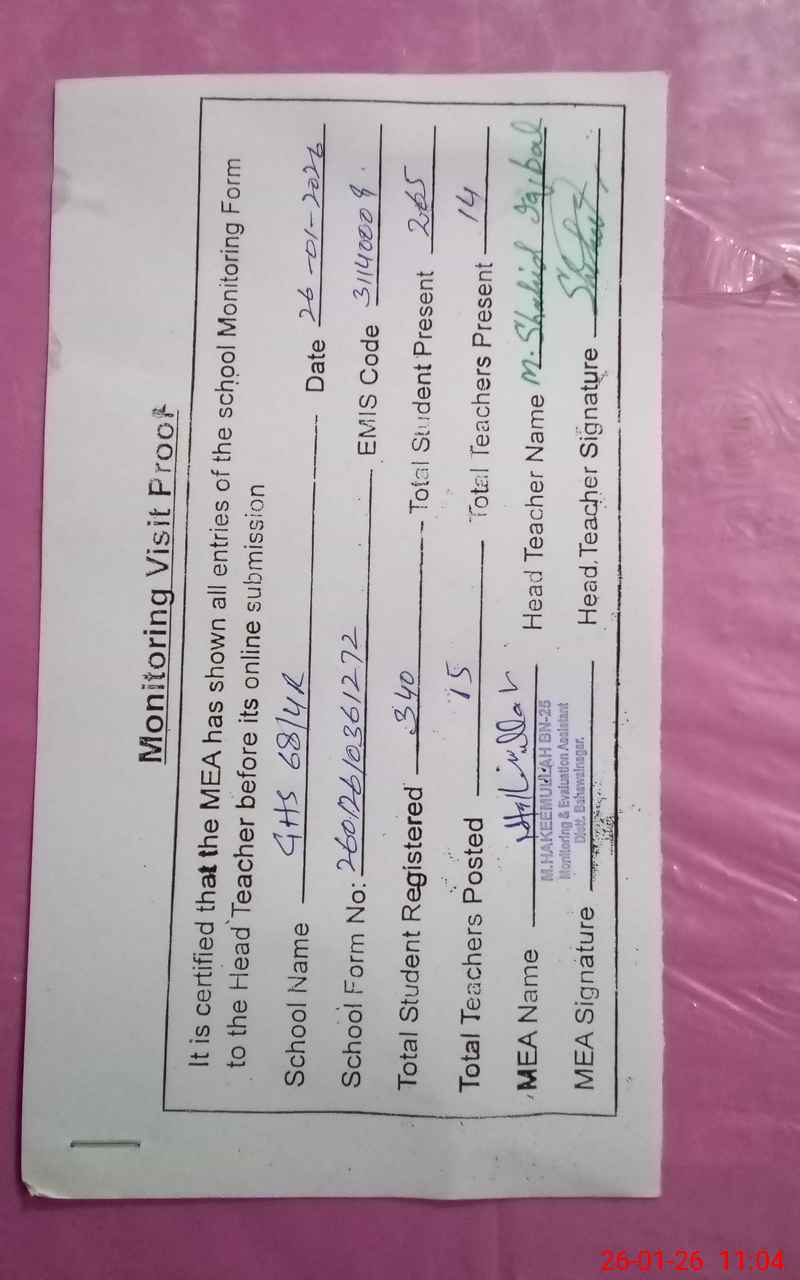 Monitoring Visit Proof
It is certified that the MEA has shown all entries of the school Monitoring Form
to the Head Teacher before its online submission
School Name GHS 68/4R Date 26-01-2026
School Form No: 260126/0361272 EMIS Code 31140009.
Total Student Registered 340 Total Student Present 265
Total Teachers Posted 15 Total Teachers Present 14
MEA Name Head Teacher Name M. Shahid Iqbal
M.HAKEEMULLAH BN-25
Monitoring & Evaluation Assistant
Distt. Bahawalnagar.
MEA Signature Head Teacher Signature
26-01-26 11:04